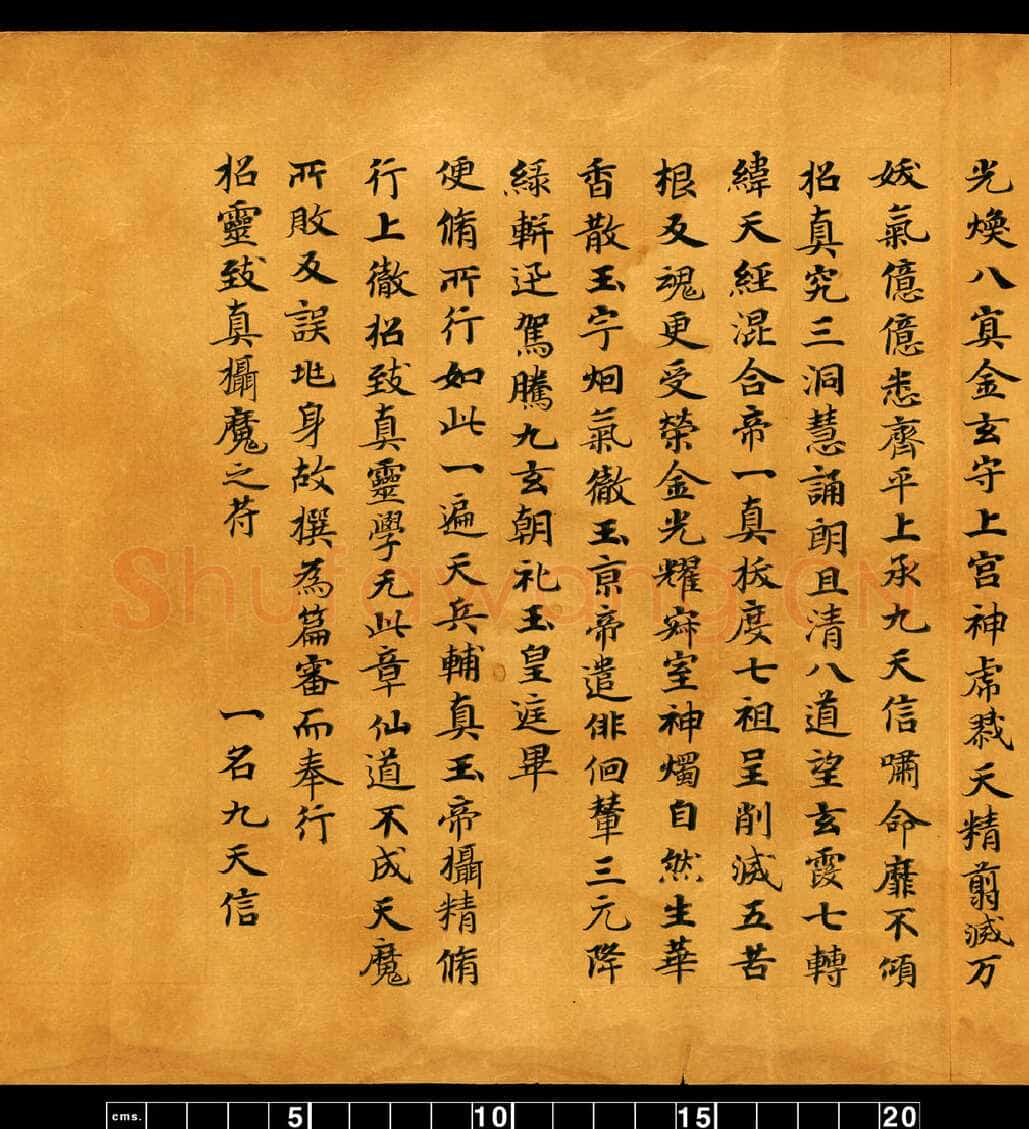 光煥八寘金玄守上宮神虎戮天精翦滅万
妖氣億億悉齊平上承九天信嘯命靡不傾
招真究三洞慧誦朗且清八道望玄霞七轉
緯天經混合帝一真拔度七祖呈削滅五苦
根反魂更受榮金光耀寐室神燭自然生華
香散玉宇烟氣徹玉京帝遣俳佪輦三元降
緑軿迅駕騰九玄朝礼玉皇庭畢
便脩所行如此一遍天兵輔真玉帝攝精脩
行上徹招致真靈學无此章仙道不成天魔
所敗反誤地身故撰為篇審而奉行
招靈致真攝魔之苻 一名九天信
Shufawang.CN
cms. 5 10 15 20